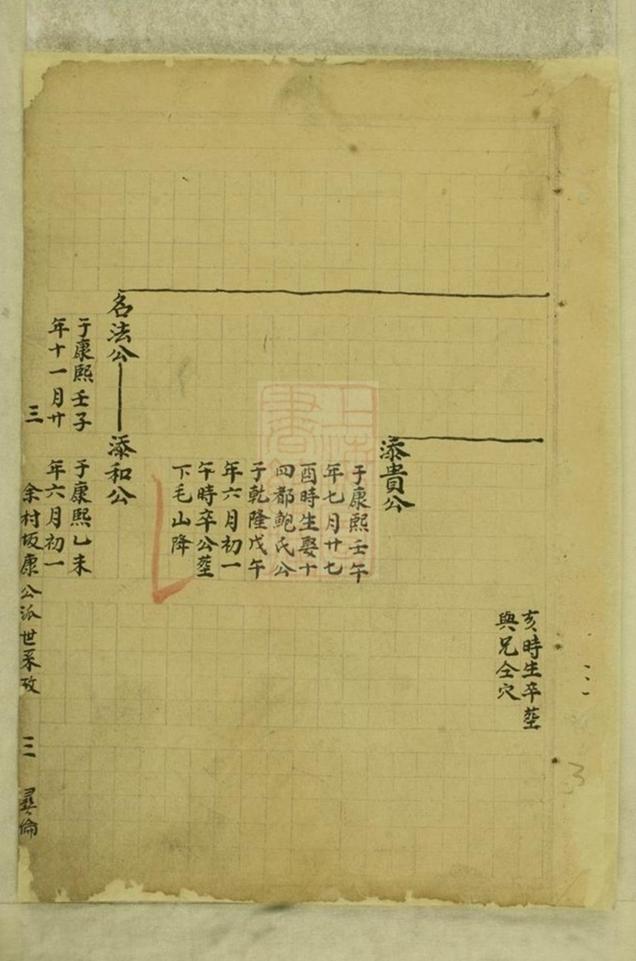 亥時生卒塟
與兄仝穴
添貴公
于康熙壬午
年七月廿七
酉時生娶十
四都鲍氏公
于乾隆戊午
年六月初一
午時卒公塟
下毛山降
名法公
添和公
于康熙壬子
年十一月廿
于康熙乙未
年六月初一
三
余村坂康公派世系攷
三
彛倫
3